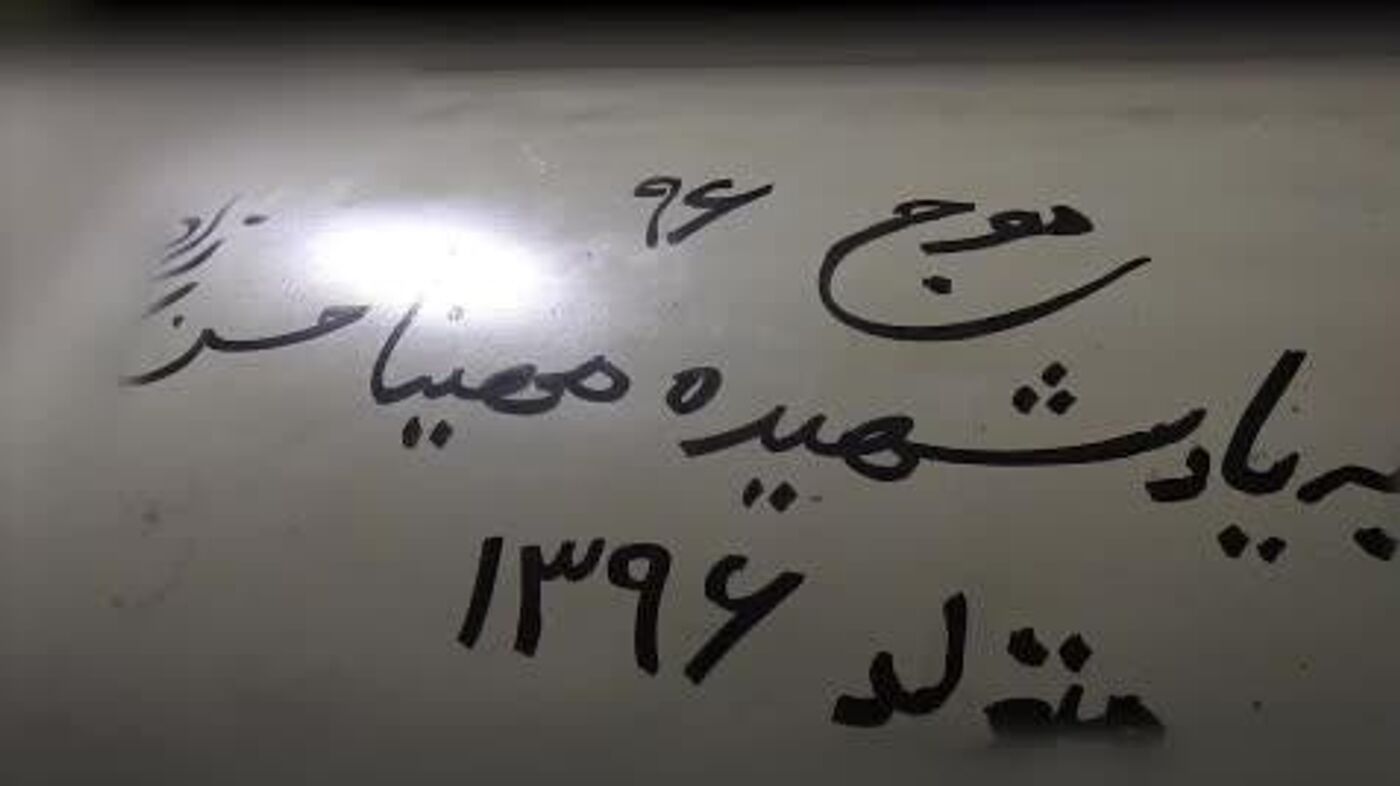 موج ۹۶
به یاد شهیده مهیسا
متولد ۱۳۹۶